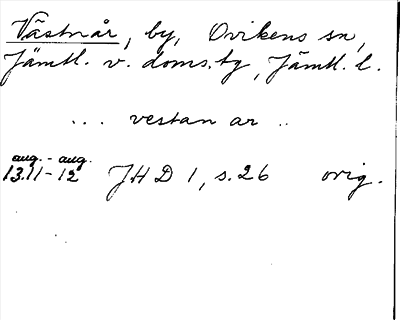 Västnår, by, Ovikens sn,
Jämtl. v. doms.tg, Jämtl. l.
... vestan ar ..
aug. - aug.
13.11-12 JHD 1, s.26 orig.